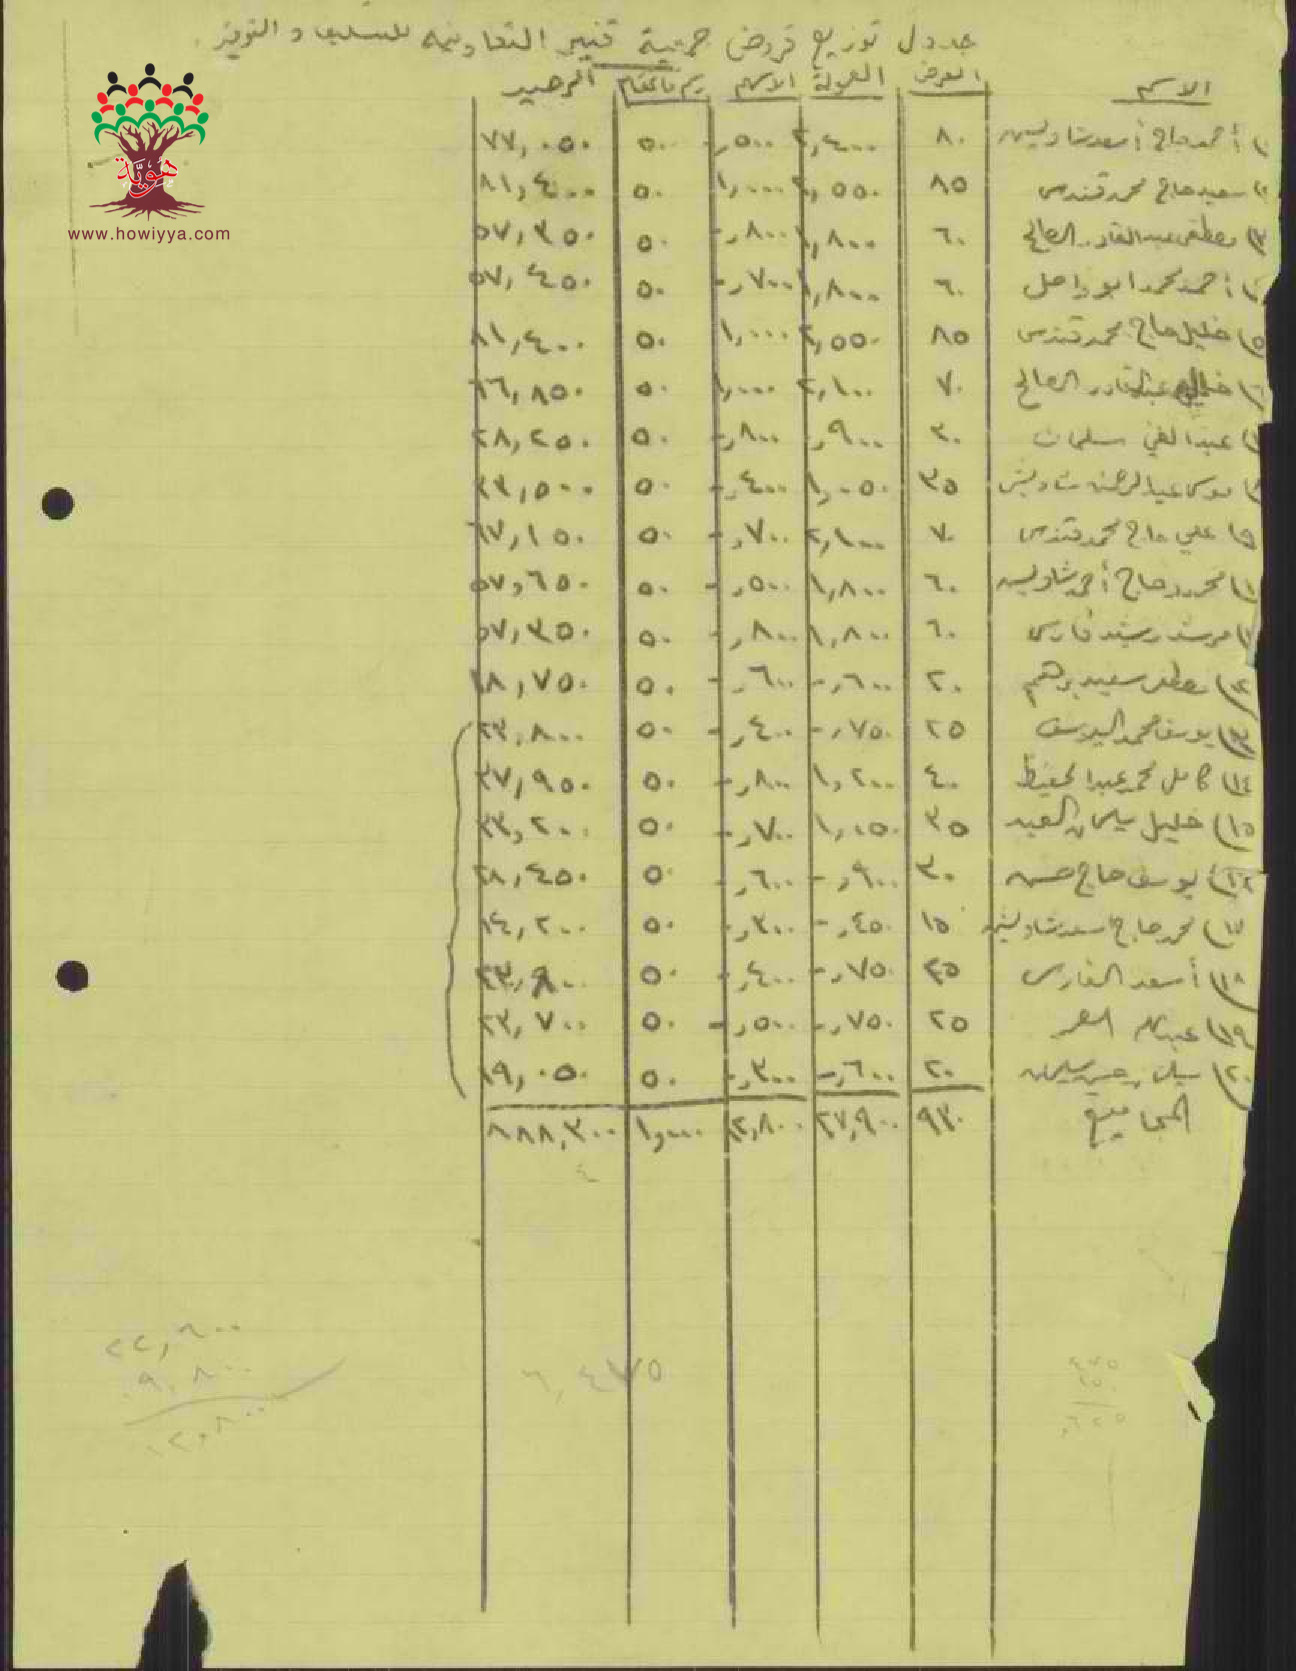 جدول توزيع قروض جمعية قنير التعاونية للتسليف والتوفير
الاسم القرض العمولة الاسهم رسم طابع الرصيد
هَوِيَّة
www.howiyya.com
١) أحمد حاج أسعد شاويش ٨٠ ٢,٤٠٠ -,٥٠٠ ٥٠ ٧٧,٠٥٠
٢) سعيد حاج محمد قندس ٨٥ ٢,٥٥٠ ١,٠٠٠ ٥٠ ٨١,٤٠٠
٣) مصطفى عبد القادر الصالح ٦٠ ١,٨٠٠ -,٨٠٠ ٥٠ ٥٧,٣٥٠
٤) أحمد محمد ابو واصل ٦٠ ١,٨٠٠ -,٧٠٠ ٥٠ ٥٧,٤٥٠
٥) خليل حاج محمد قندس ٨٥ ٢,٥٥٠ ١,٠٠٠ ٥٠ ٨١,٤٠٠
٦) عبد القادر الصالح ٧٠ ٢,١٠٠ ١,٠٠٠ ٥٠ ٦٦,٨٥٠
٧) عبد الغني سلمان ٣٠ -,٩٠٠ -,٨٠٠ ٥٠ ٢٨,٢٥٠
٨) موسى عبد الرحمن شاويش ٣٥ ١,٠٥٠ -,٤٠٠ ٥٠ ٣٣,٥٠٠
٩) علي حاج محمد قندس ٧٠ ٢,١٠٠ -,٧٠٠ ٥٠ ٦٧,١٥٠
١٠) محمود حاج أحمد شاويش ٦٠ ١,٨٠٠ -,٥٠٠ ٥٠ ٥٧,٦٥٠
١١) مرشد رشيد فارس ٦٠ ١,٨٠٠ -,٨٠٠ ٥٠ ٥٧,٣٥٠
١٢) مصطفى سعيد برهم ٢٠ -,٦٠٠ -,٦٠٠ ٥٠ ١٨,٧٥٠
١٣) يوسف محمد اليوسف ٢٥ -,٧٥٠ -,٤٠٠ ٥٠ ٢٣,٨٠٠
١٤) كامل محمد عبد الحفيظ ٤٠ ١,٢٠٠ -,٨٠٠ ٥٠ ٣٧,٩٥٠
١٥) خليل سليمان العبد ٣٥ ١,٠٥٠ -,٧٠٠ ٥٠ ٣٣,٢٠٠
١٦) يوسف حاج حسن ٣٠ -,٩٠٠ -,٦٠٠ ٥٠ ٢٨,٤٥٠
١٧) محمد حاج اسعد شاويش ١٥ -,٤٥٠ -,٣٠٠ ٥٠ ١٤,٢٠٠
١٨) أسعد الفارس ٢٥ -,٧٥٠ -,٤٠٠ ٥٠ ٢٣,٨٠٠
١٩) عبدالله ٢٥ -,٧٥٠ -,٥٠٠ ٥٠ ٢٣,٧٠٠
٢٠) سليمان ٢٠ -,٦٠٠ -,٣٠٠ ٥٠ ١٩,٠٥٠
المجاميع ٩٣٠ ٢٧,٩٠٠ ١٢,٨٠٠ ١,٠٠٠ ٨٨٨,٣٠٠
٤
٢٢,٦٠٠
٩,٨٠٠
١٢,٨٠٠
٦,٤٧٥